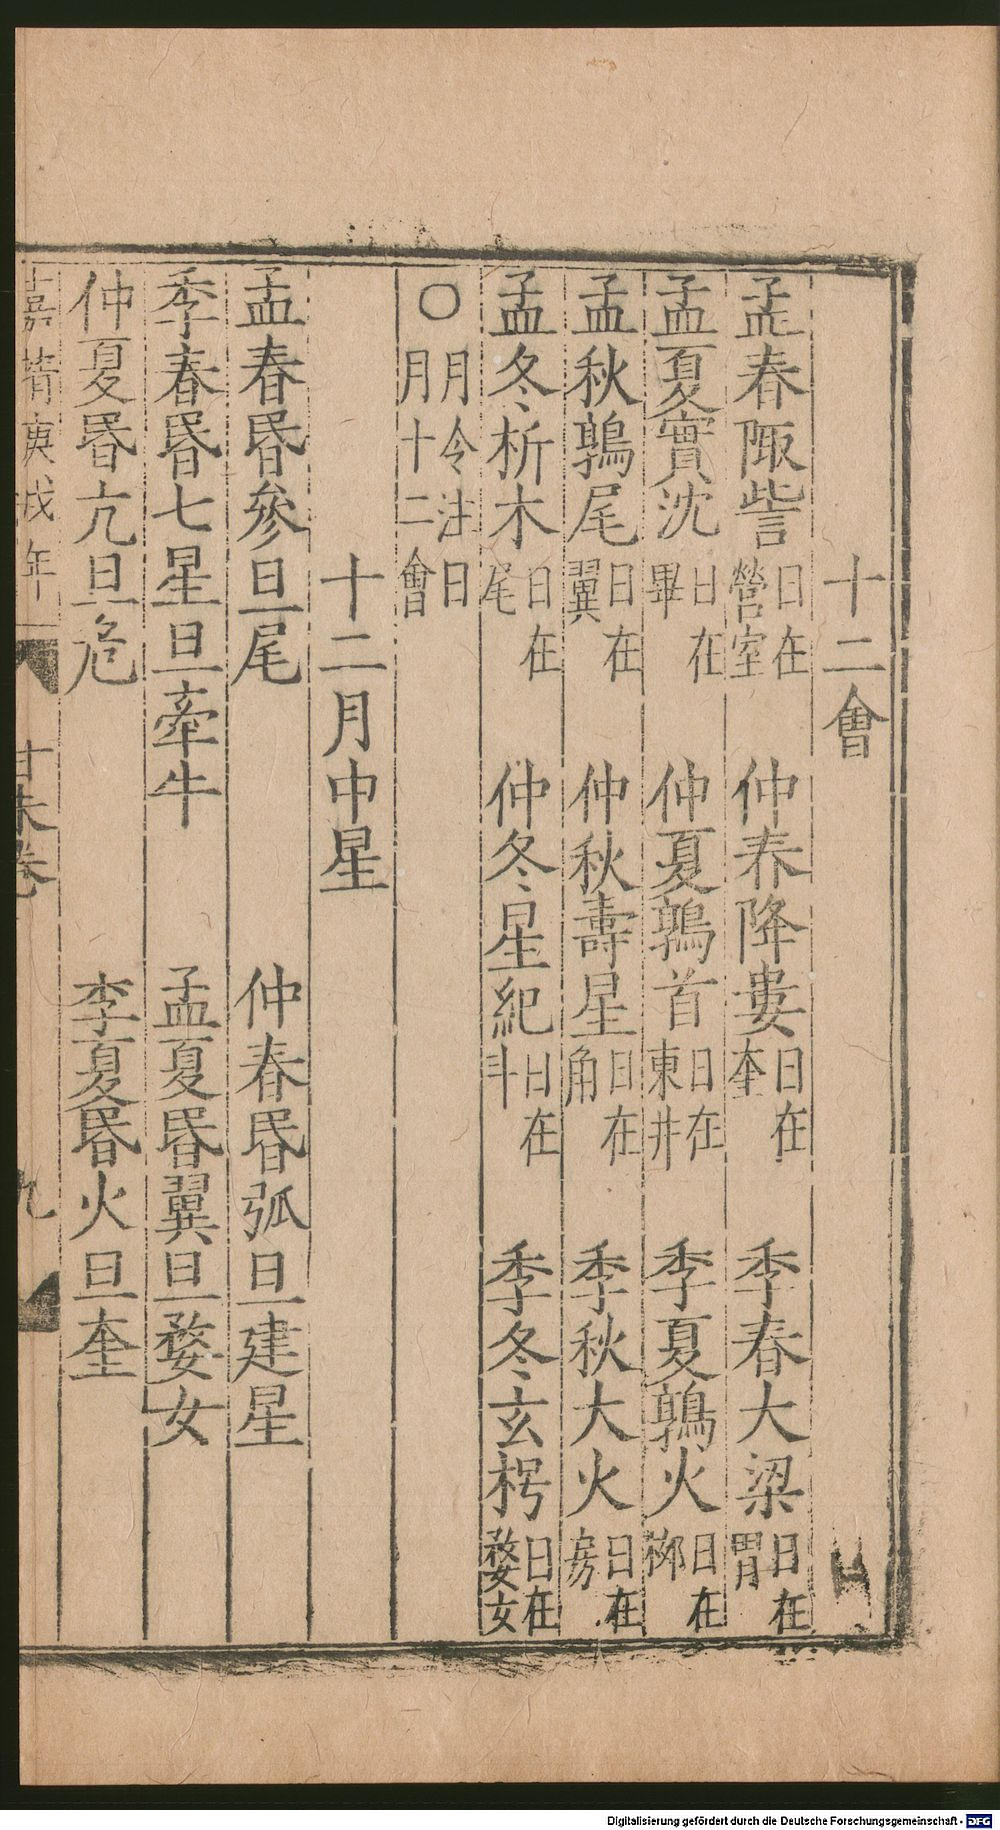 十二會
孟春陬訾日在營室 仲春降婁日在奎 季春大梁日在胃
孟夏實沈日在畢 仲夏鶉首日在東井 季夏鶉火日在柳
孟秋鶉尾日在翼 仲秋壽星日在角 季秋大火日在房
孟冬析木日在尾 仲冬星紀日在斗 季冬玄枵日在婺女
〇月令注日月十二會
十二月中星
孟春昏參旦尾 仲春昏弧旦建星
季春昏七星旦牽牛 孟夏昏翼旦婺女
仲夏昏亢旦危 季夏昏火旦奎
嘉靖庚戌年 九
Digitalisierung gefördert durch die Deutsche Forschungsgemeinschaft - DFG